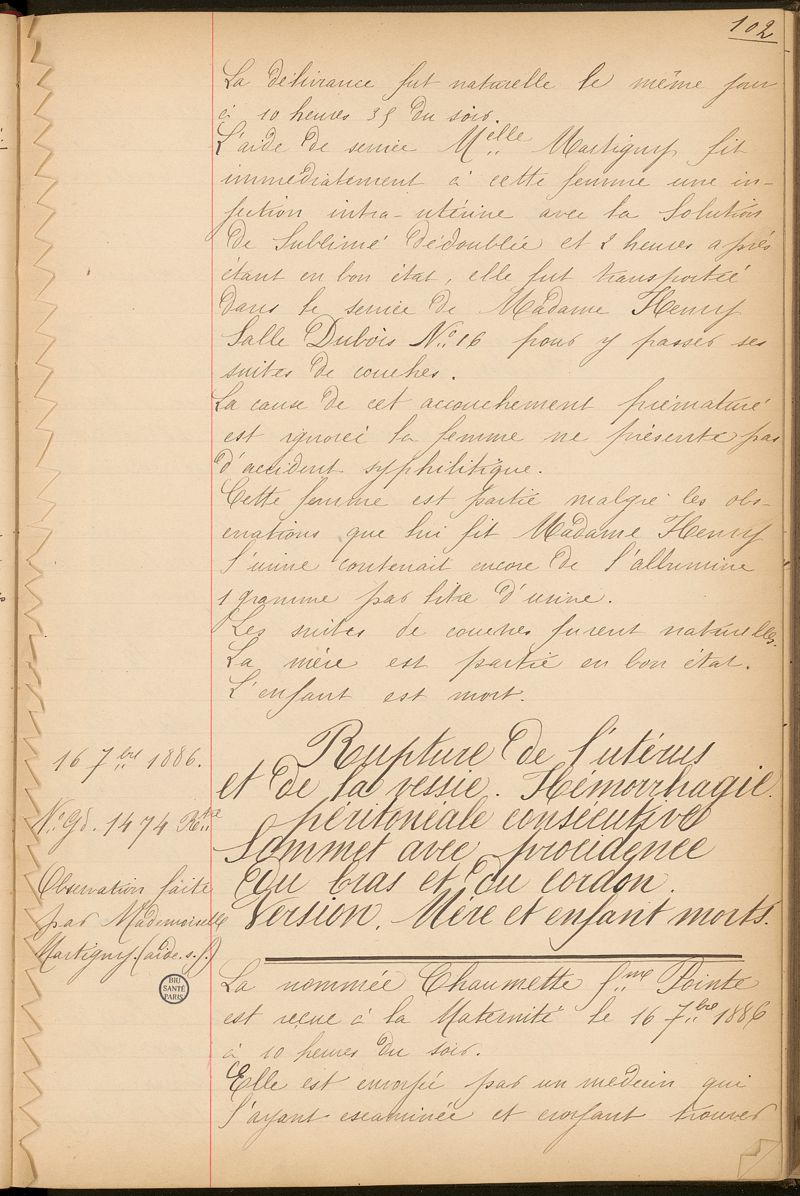 102
La délivrance fut naturelle le même jour
à 10 heures 35 du soir.
L'aide de service M.elle Martigny fit
immédiatement à cette femme une in-
jection intra-utérine avec la Solution
de Sublimé dédoublée et 2 heures après
étant en bon état, elle fut transportée
dans le service de Madame Henry
Salle Dubois No. 16 pour y passer ses
suites de couches.
La cause de cet accouchement prématuré
est ignorée la femme ne présente pas
d'accident syphilitique.
Cette femme est partie malgré les obs-
ervations que lui fit Madame Henry
l'urine contenait encore de l'albumine
1 gramme par litre d'urine.
Les suites de couches furent naturelles.
La mère est partie en bon état.
L'enfant est mort.
16 7.bre 1886.
No. Gd. 1474
Observation faite
par Mademoiselle
Martigny. (aide. s. f.)
Rupture de l'utérus
et de la vessie. Hémorrhagie
péritonéale consécutive
Sommet avec procidence
du bras et du cordon.
Version. Mère et enfant morts.
BIU
SANTÉ
PARIS
La nommée Chaumette f.me Pointe
est reçue à la Maternité le 16 7.bre 1886
à 10 heures du soir.
Elle est envoyée par un médecin qui
l'ayant examinée et croyant trouver